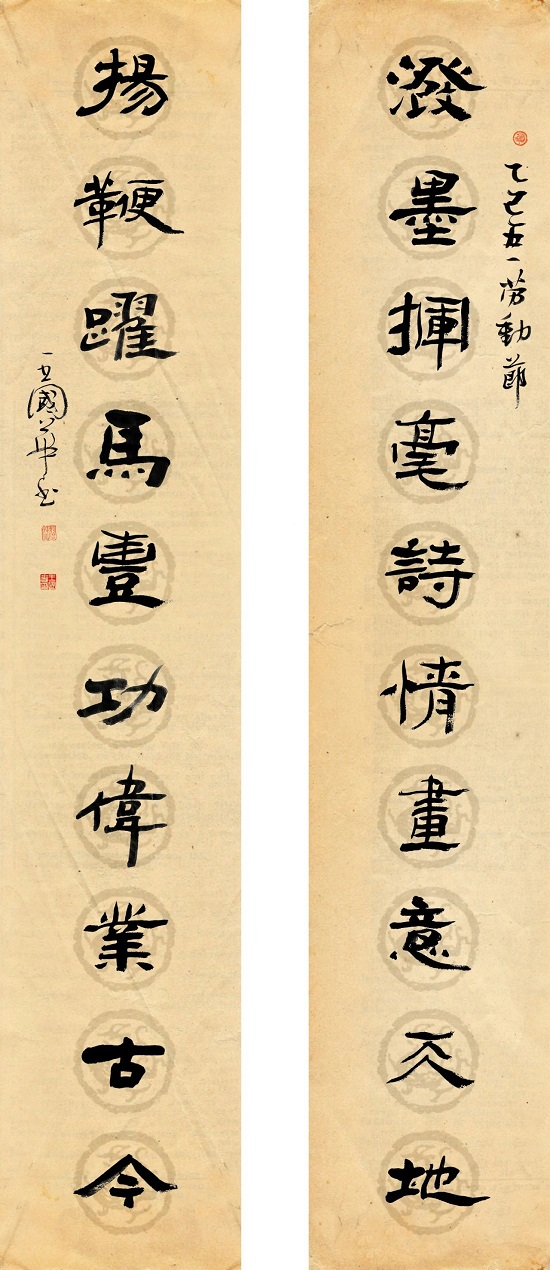 潑墨揮毫詩情畫意天地
乙巳五一勞動節
揚鞭躍馬豐功偉業古今
王國華書